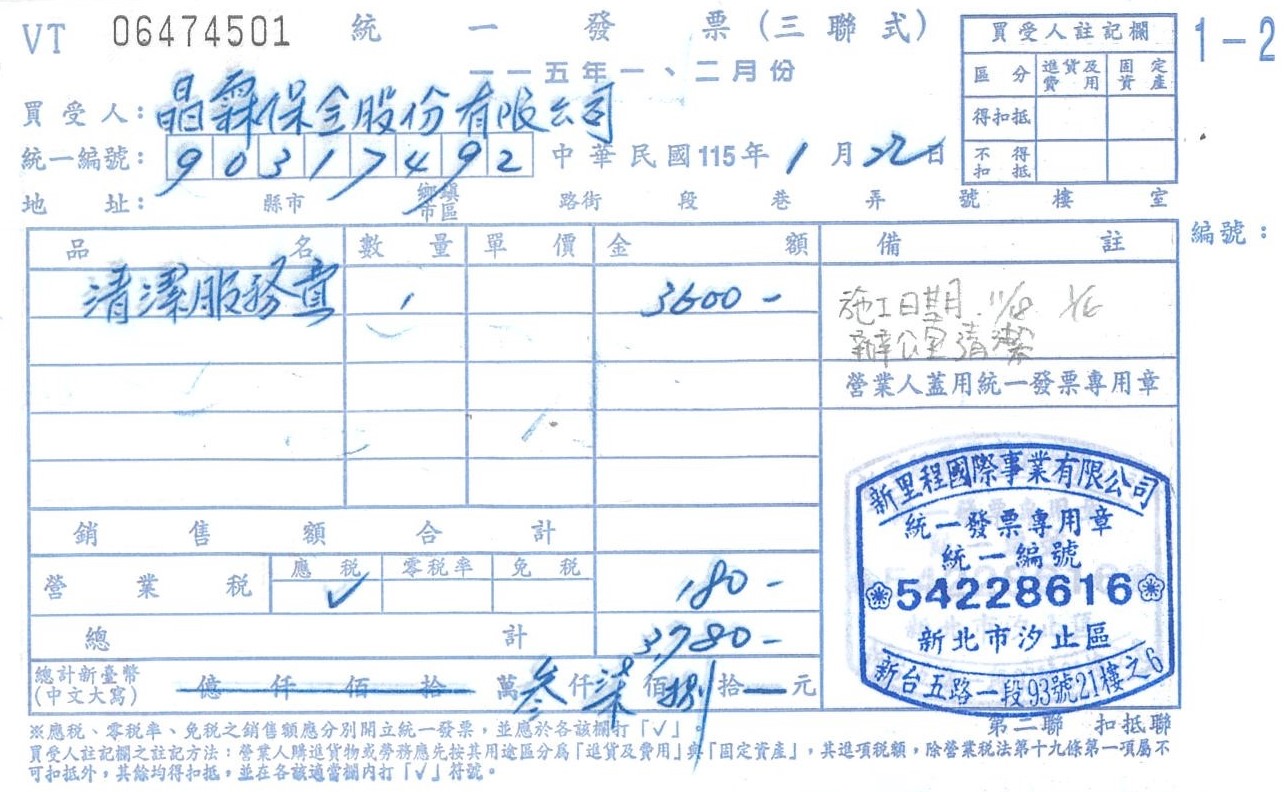 VT 06474501 統一發票(三聯式)
一一五年一、二月份
1-2
買受人註記欄
區分 進貨及費用 固定資產
得扣抵
不得扣抵
買受人:晶霖保全股份有限公司
統一編號:90317492 中華民國115年1月22日
地址: 縣市 鄉鎮市區 路街 段 巷 弄 號 樓 室
編號:
品名 數量 單價 金額 備註
清潔服務費 1 3600-
施工日期 11/18 1/6
辦公室清潔
營業人蓋用統一發票專用章
銷售額合計
營業稅 應稅 ✓ 零稅率 免稅 180-
總計 3,780-
總計新臺幣(中文大寫) 億 仟 佰 拾 萬 參 仟 柒 佰 捌 拾 元
新里程國際事業有限公司
統一發票專用章
統一編號
54228616
新北市汐止區
新台五路一段93號21樓之6
第二聯 扣抵聯
※應稅、零稅率、免稅之銷售額應分別開立統一發票,並應於各該欄打「✓」。
買受人註記欄之註記方法:營業人購進貨物或勞務應先按其用途區分為「進貨及費用」與「固定資產」,其進項稅額,除營業稅法第十九條第一項屬不
可扣抵外,其餘均得扣抵,並在各該適當欄內打「✓」符號。